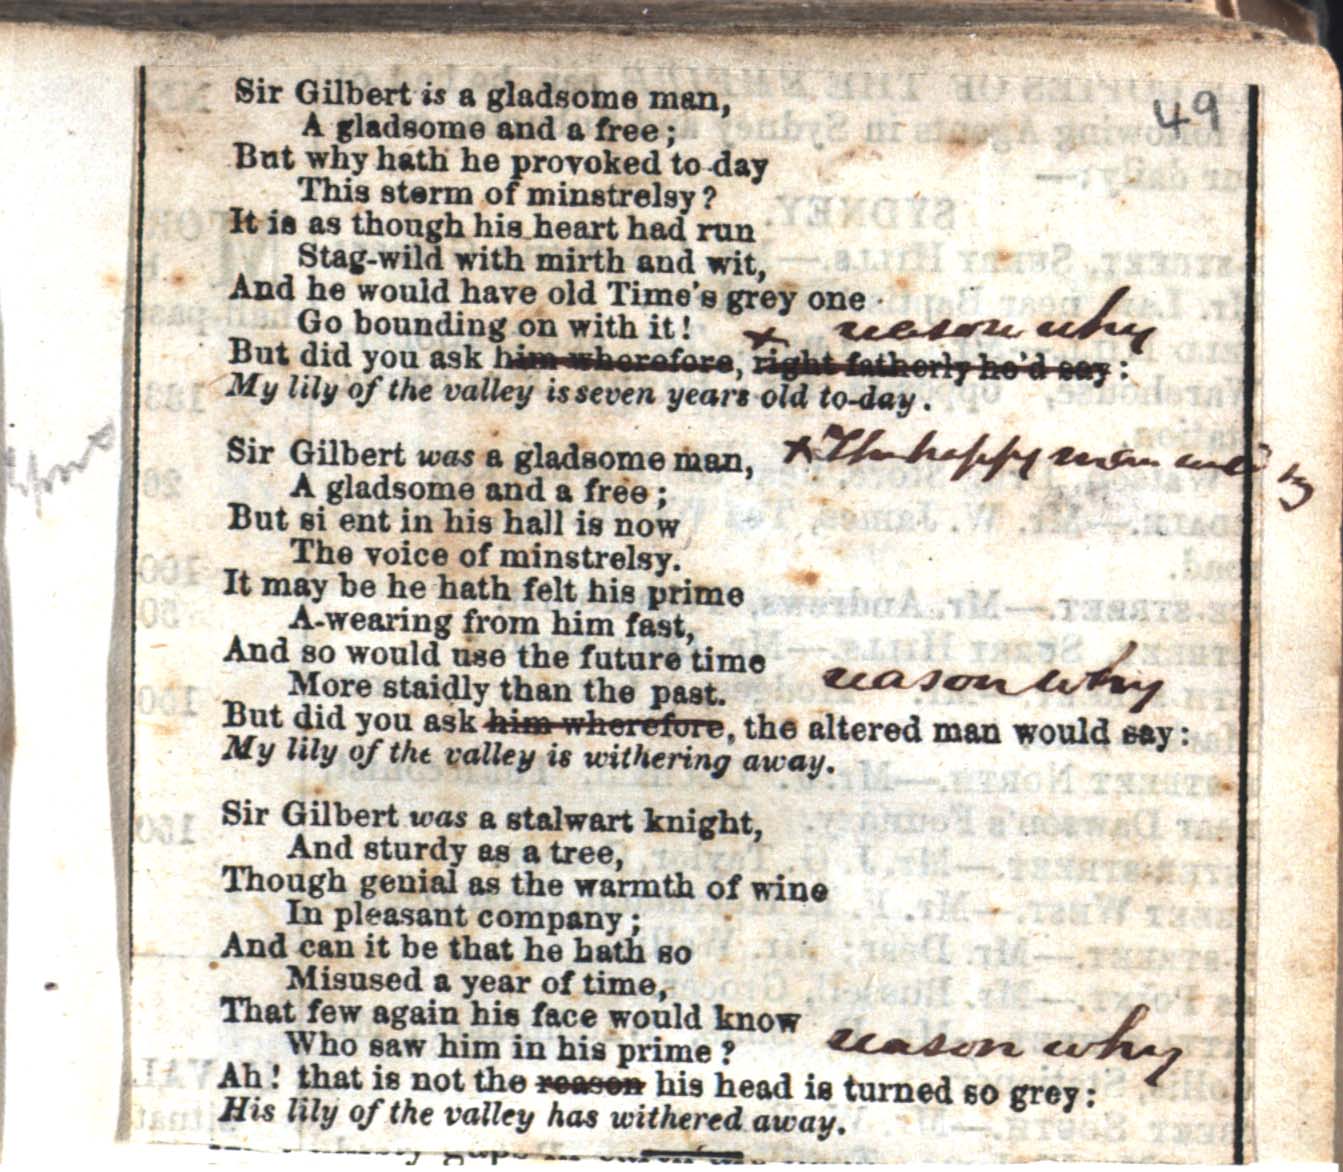 49
Sir Gilbert is a gladsome man,
A gladsome and a free;
But why hath he provoked to-day
This storm of minstrelsy?
It is as though his heart had run
Stag-wild with mirth and wit,
And he would have old Time's grey one
Go bounding on with it!
+ reason why
But did you ask him wherefore, right fatherly he'd say:
My lily of the valley is seven years old to-day.
Sir Gilbert was a gladsome man,
+ The happy man
A gladsome and a free;
But si ent in his hall is now
The voice of minstrelsy.
It may be he hath felt his prime
A-wearing from him fast,
And so would use the future time
reason why
More staidly than the past.
But did you ask him wherefore, the altered man would say:
My lily of the valley is withering away.
Sir Gilbert was a stalwart knight,
And sturdy as a tree,
Though genial as the warmth of wine
In pleasant company;
And can it be that he hath so
Misused a year of time,
That few again his face would know
reason why
Who saw him in his prime?
Ah! that is not the reason his head is turned so grey:
His lily of the valley has withered away.